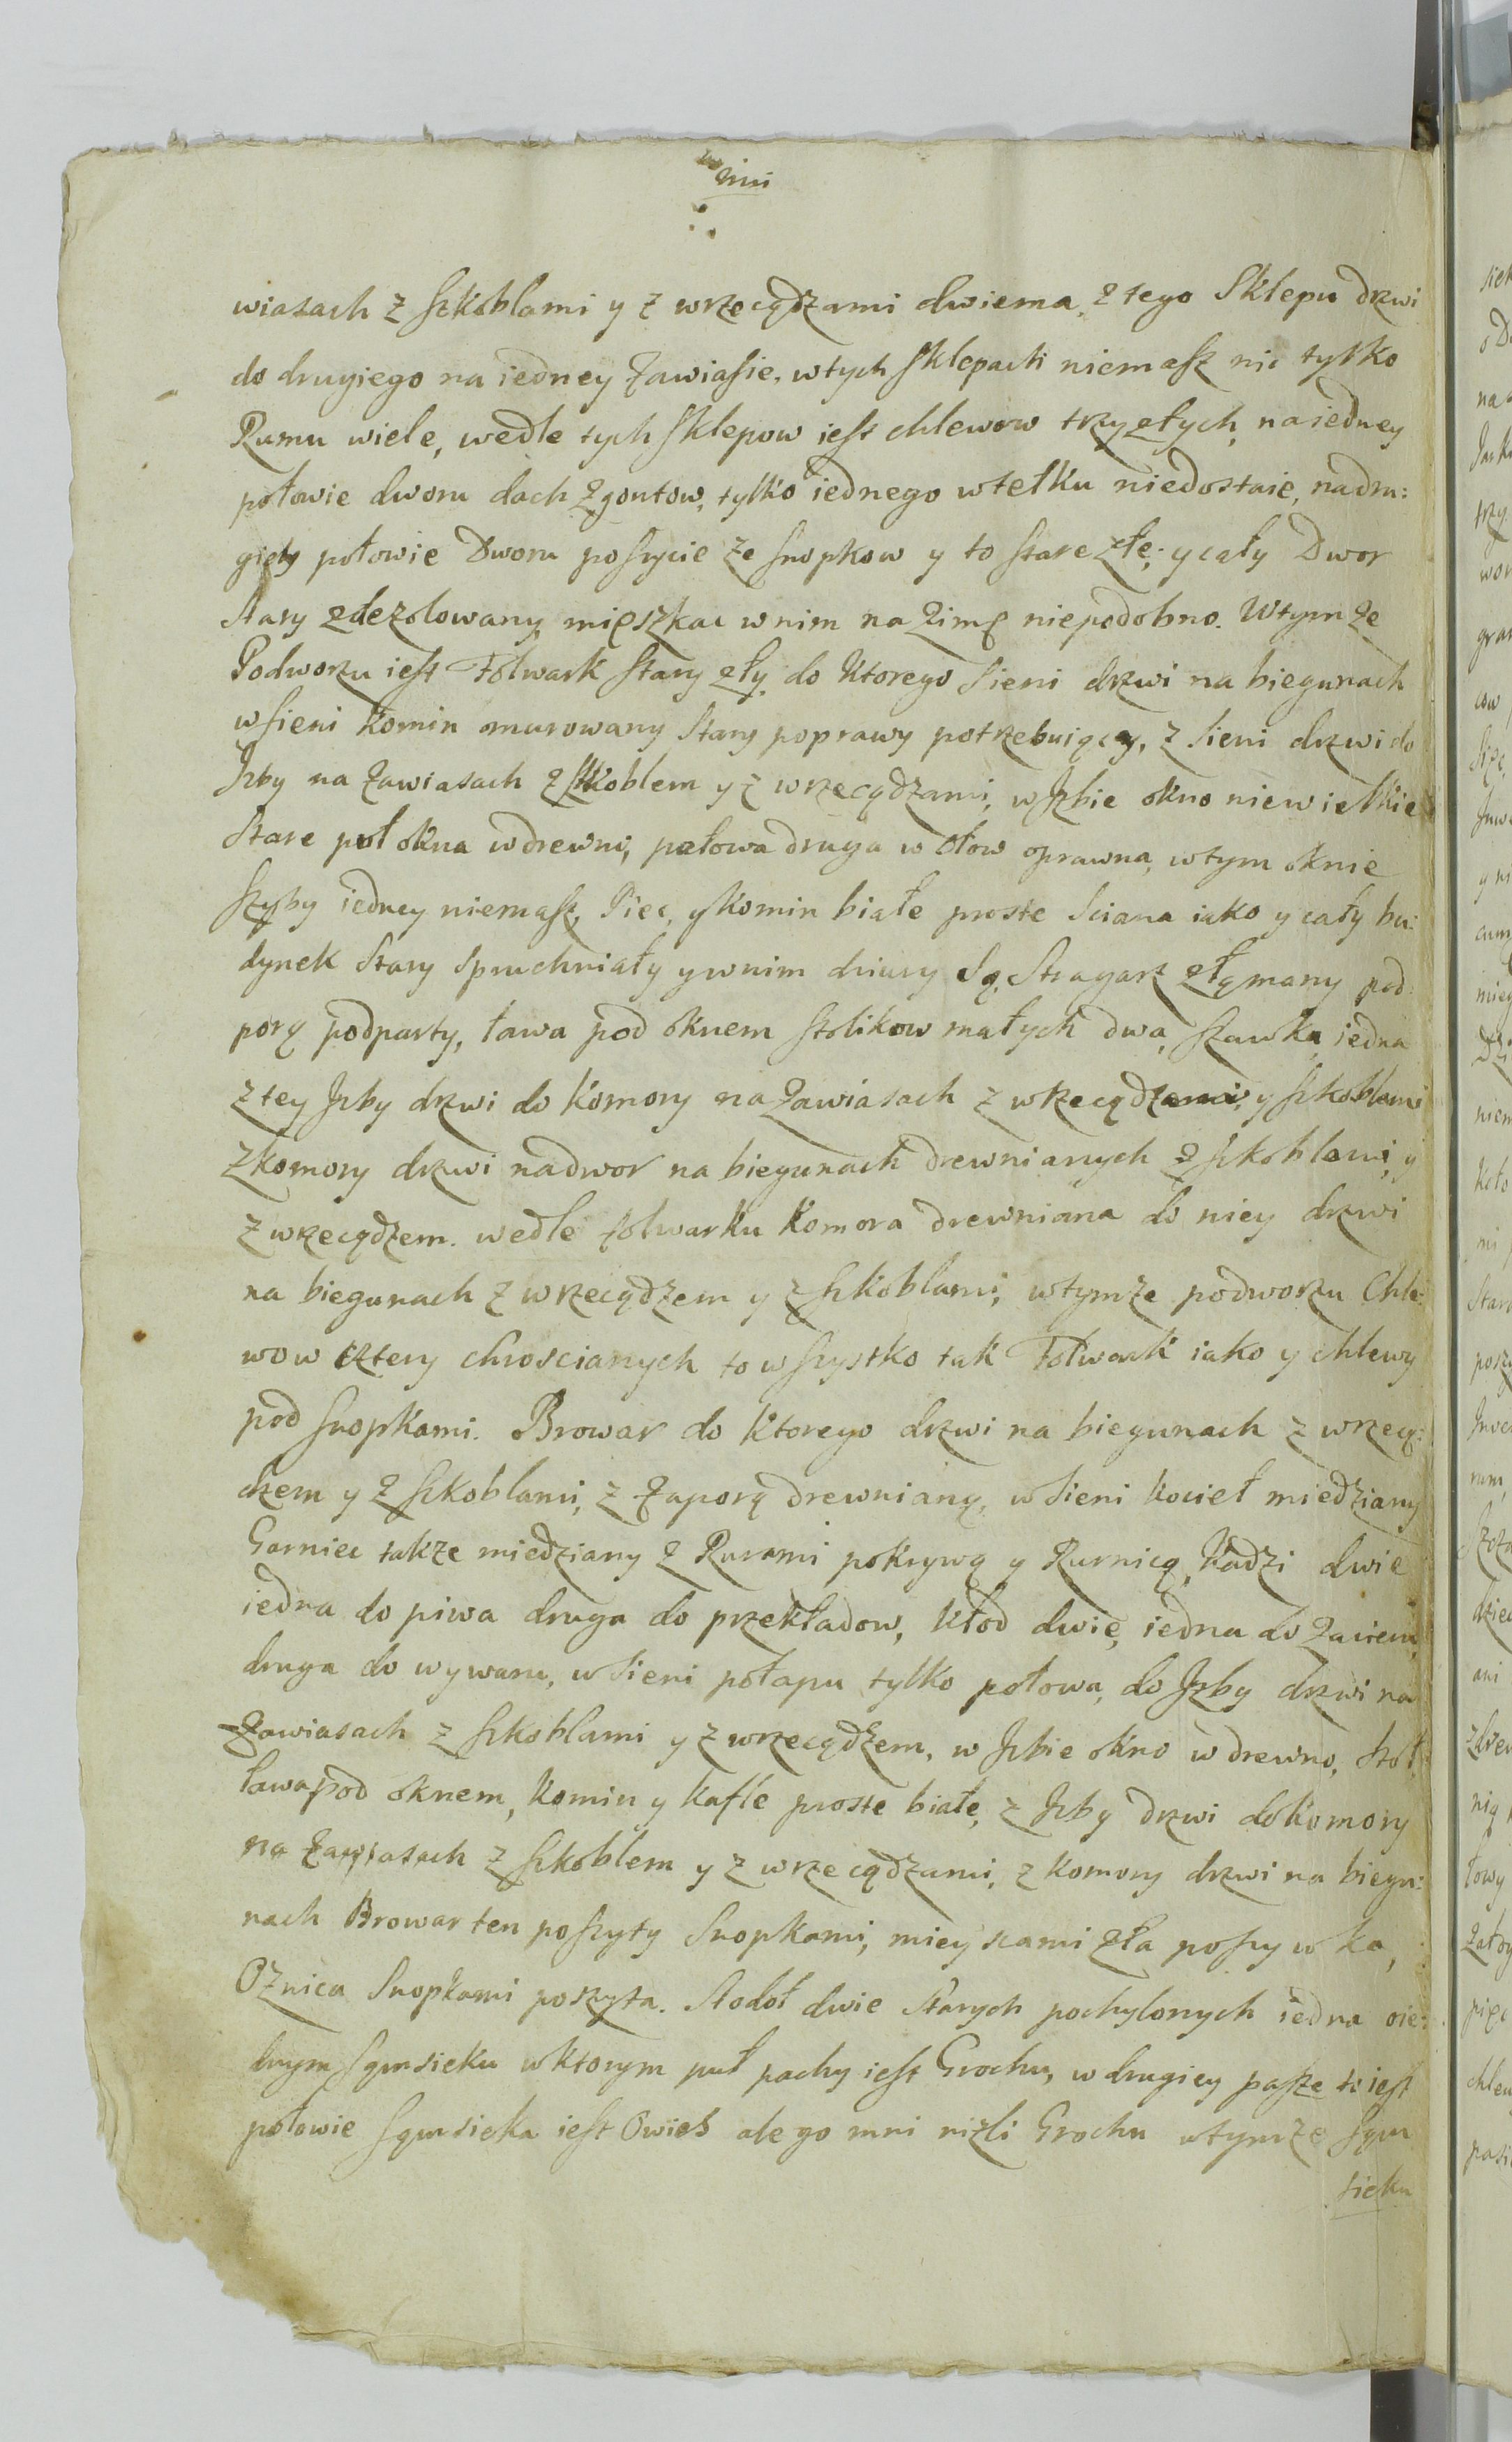 wiasach z szkoblami y z wrzecądzami dwiema, z tego Sklepu drzwi
do drugiego na iedney zawiasie, wtych sklepach niemasz nic tylko
Rumu wiele, wedle tych sklepow iest chlewow trzy złych, na iedney
połowie dworu dach zgontow, tylko iednego wtełku niedostaie, nadru:
giey połowie Dworu poszycie ze snopkow y to stare złe; y cały Dwor
stary zdezolowany mięszkac wnim na zimę niepodobno. Wtym ze
Podworzu iest Folwark stary zły do ktorego Sieni drzwi na biegunach
w sieni komin murowany stary poprawy potrzebuiący, z Sieni drzwi do
Izby na zawiasach z szkoblem y z wrzecądzami, w Izbie okno niewielkie
Stare puł okna wdrewni, połowa druga w ołow oprawna, wtym oknie
szyby iedney niemasz, Piec, y komin białe proste Sciana iako y cały bu:
dynek Stary spruchniały ywnim dziury Są, Stragarz złąmany pod:
porą podparty, ława pod oknem stolikow małych dwa, szawka iedna
z tey Izby drzwi do komory na zawiasach z wrzecądzami, y szkoblami
z komory drzwi nadwor na biegunach drewnianych z szkoblami, y
z wrzecądzem. wedle folwarku komora drewniana do niey drzwi
na biegunach z wrzecądzem y z szkoblami, wtymze podworzu Chle:
wow cztery chroscianych to wszystko tak Folwark iako y chlewy
pod snopkami. Browar do ktorego drzwi na biegunach z wrzecą:
dzem y z szkoblami, z zaporą drewnianą, w Sieni kocieł miedziany
Garniec takze miedziany z Rurami pokrywą y Rurnicą, kadzi dwie
iedna do piwa druga do przekładow, kłod dwie, iedna do
druga do wywaru, w Sieni połapu tylko połowa, do Izby drzwi na
zawiasach z szkoblami y z wrzecądzem, w Izbie okno w drewno, stoł,
ława pod oknem, komin y kafle proste białe, z Izby drzwi do komory
na zawiasach z szkoblem y z wrzecądzami, z komory drzwi na biegu:
nach Browar ten poszyty Snopkami, mieyscami zła poszywka,
Oznica Snopkami poszyta. Stodoł dwie Starych pochylonych iedna oie:
dnym sąsieku wktorym puł pachy iest Grochu, w drugiey pasze to iest
połowie sąsieka iest Owies ale go mni nizli Grochu wtymze sąm
sieku